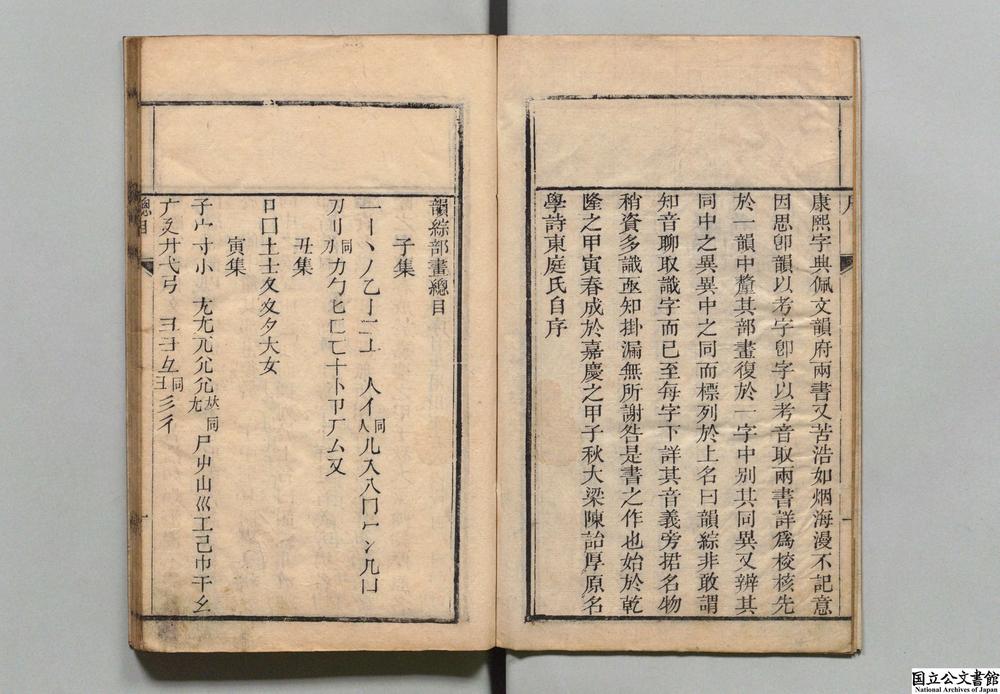 康熙字典佩文韻府兩書又苦浩如烟海漫不記意
因思卽韻以考字卽字以考音取兩書詳爲校核先
於一韻中釐其部畫復於一字中别其同異又辨其
同中之異異中之同而標列於上名曰韻綜非敢謂
知音聊取識字而已至每字下詳其音義旁捃名物
稍資多識亟知掛漏無所謝咎是書之作也始於乾
隆之甲寅春成於嘉慶之甲子秋大梁陳詒厚原名
學詩東庭氏自序
韻綜部畫總目
子集
一丨丶丿乙亅二亠 人亻同人儿入八冂冖冫几凵
刀刂同刅力勹匕匚匸十卜卩厂厶又
丑集
口囗土士夂夊夕大女
寅集
子宀寸小 尢尣兀尣允㒫同尸屮山巛工己巾干幺
广廴廾弋弓 彐彐彑同彡彳
總目
一
國立公文書館
National Archives of Japan